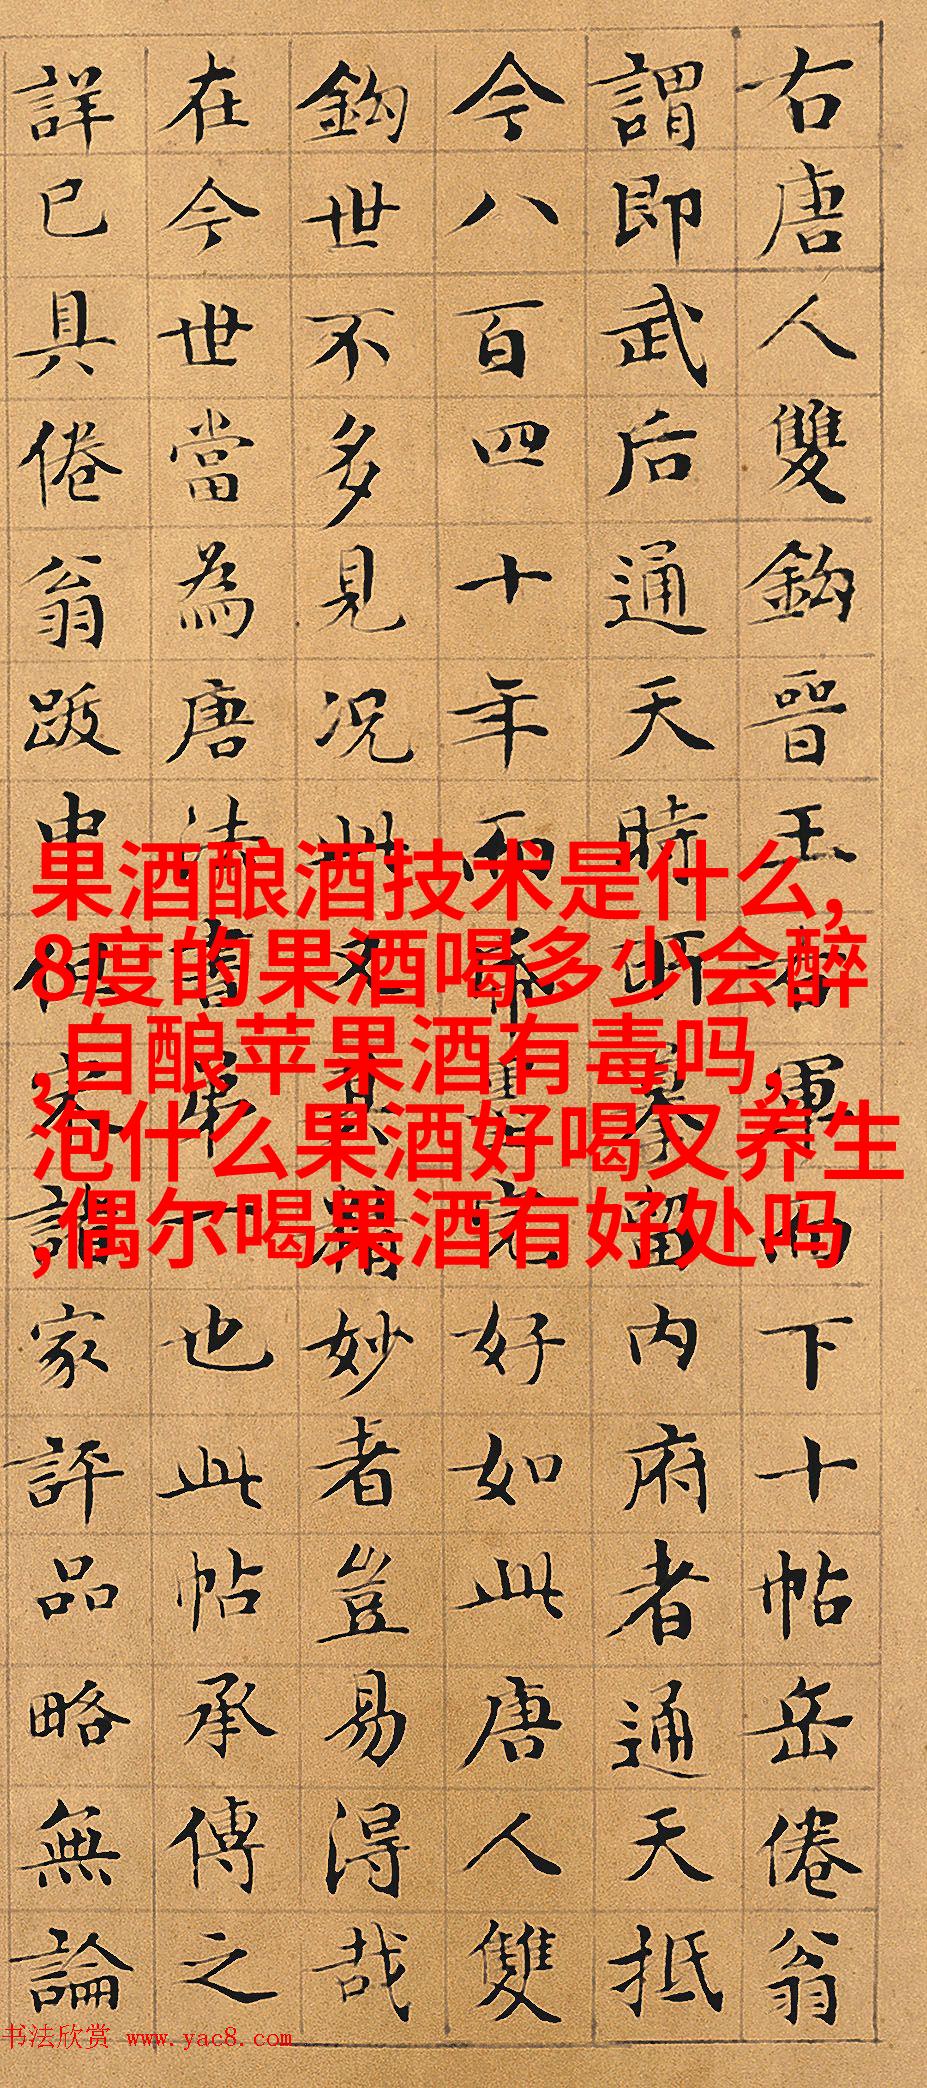 右唐人雙鈎晉王右軍而下十帖岳倦翁
謂即武后通天時所摹留内府者通天抵
今八百四十年而帋墨完好如此唐人雙
鈎世不多見况此又其精妙者豈易得哉
在今世當為唐法書第一也此帖承傳之
詳已具倦翁跋中但宋諸家評品略無論
果酒酿酒技术是什么,
8度的果酒喝多少会醉
,自酿苹果酒有毒吗,
泡什么果酒好喝又养生
,偶尔喝果酒有好处吗
书法欣赏 www.yac8.com